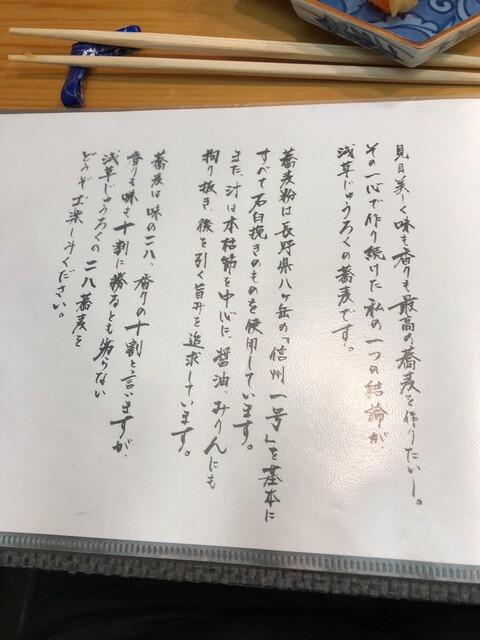 見目美しく味も香りも最高の蕎麦を作りたいー。
その一心で作り続けた私の一つの結論が、
浅草じゅうろくの蕎麦です。
蕎麦粉は長野県八ヶ岳の「信州一号」を基本に
すべて石臼挽きのものを使用しています。
また、汁は本枯節を中心に、醤油、みりんにも
拘り抜き、後を引く旨みを追求しています。
蕎麦は味の二八、香りの十割と言いますが、
香りも味も十割に勝るとも劣らない
浅草じゅうろくの二八蕎麦を
どうぞお楽しみください。